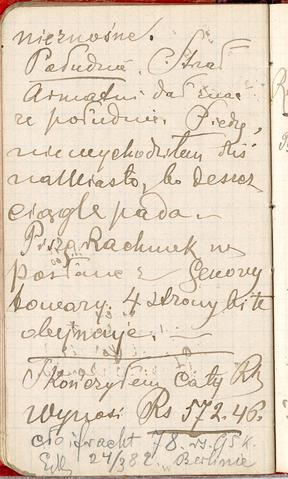 nieznośne.
Południe. Strzał
Armatni dał znać
że południe. Siedzę,
niewychodziłem dziś
na Miasto, bo deszcz
ciągle pada.
Piszą Rachunek na
posłane z Genowy
towary. 4 strony bite
obejmuje. —
Skończyłem cały Rk
Wynosi Rs 572.46.
cło fracht 78. rs. 95 k.
24/3 82. Berlinie